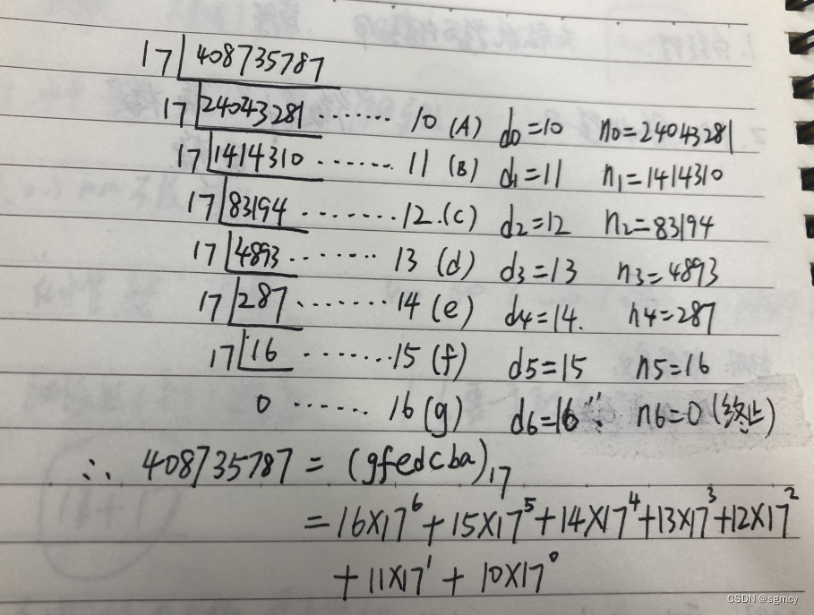 17 408735787
17 24043281 ........ 10 (A) d0=10 n0=24043281
17 1414310 ........ 11 (B) d1=11 n1=1414310
17 83194 ........ 12.(c) d2=12 n2=83194
17 4893 ........ 13 (d) d3=13 n3=4893
17 287 ........ 14 (e) d4=14. n4=287
17 16 ........ 15 (f) d5=15 n5=16
0 ...... 16 (g) d6=16 n6=0 (终止)
∴ 408735787 = (gfedcba)₁₇
= 16×17⁶ + 15×17⁵ + 14×17⁴ + 13×17³ + 12×17²
+ 11×17¹ + 10×17⁰
CSDN @sgmcy